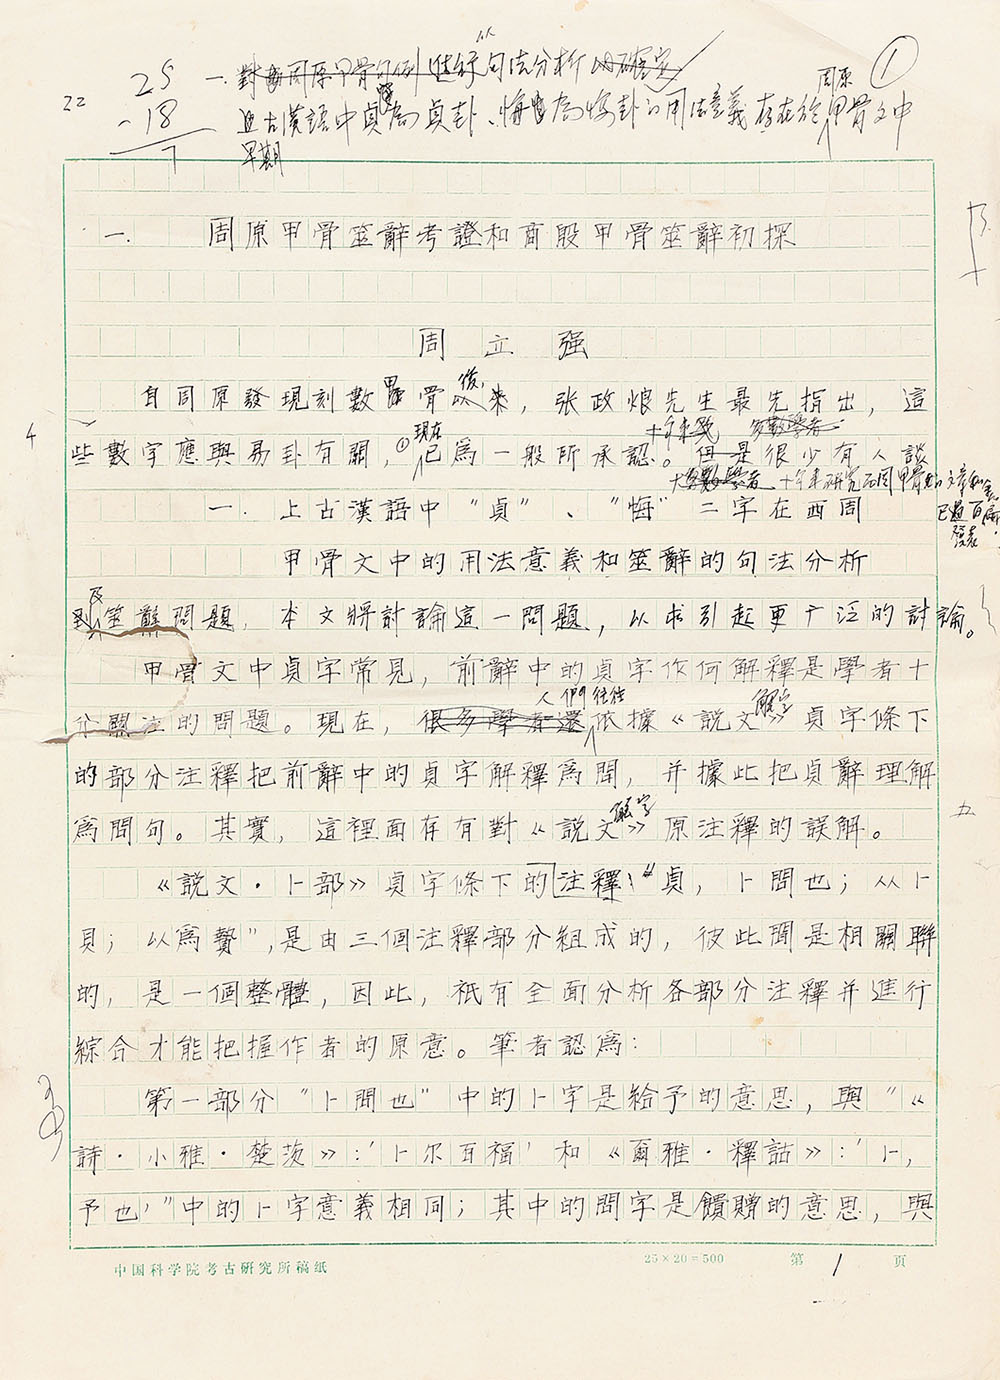 25
22
-18
7
一.對周原甲骨句例進行從句法分析以確定
周原
①
上古漢語中貞為貞卦、悔為悔卦的用法意義存在於甲骨文中
早期
一. 周原甲骨筮辭考證和商殷甲骨筮辭初探
周立强
自周原發現刻數甲骨以後來，张政烺先生最先指出，這
些數字應與易卦有關，①現在已為一般所承認。但是很少有人談
十年来 多數學者
一. 上古漢語中“貞”、“悔”二字在西周
已過百篇
發表
甲骨文中的用法意義和筮辭的句法分析
到及筮辭問題，本文將討論這一問題，以求引起更广泛的討論。
甲骨文中貞字常見，前辭中的貞字作何解釋是學者十
分關注的問題。現在，很多學者還人們往往依據《説文解字》貞字條下
的部分注釋把前辭中的貞字解釋為問，并據此把貞辭理解
為問句。其實，這裡面存有對《説文解字》原注釋的誤解。
《説文·卜部》貞字條下的注釋：“貞，卜問也；从卜
貝；以為贄”，是由三個注釋部分組成的，彼此間是相關聯
的，是一個整體，因此，祇有全面分析各部分注釋并進行
綜合才能把握作者的原意。筆者認為：
第一部分“卜問也”中的卜字是給予的意思，與“《
詩·小雅·楚茨》：‘卜尔百福’和《爾雅·釋詁》：‘卜，
予也’”中的卜字意義相同；其中的問字是饋贈的意思，與
中国科学院考古研究所稿紙
25×20=500
第 1 页